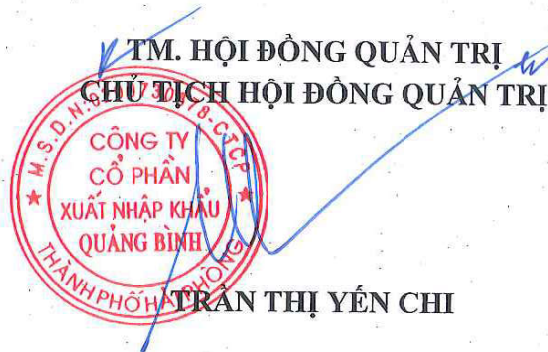 TM. HỘI ĐỒNG QUẢN TRỊ
CHỦ TỊCH HỘI ĐỒNG QUẢN TRỊ
M.S.D.N: C.T.C.P
CÔNG TY
CỔ PHẦN
XUẤT NHẬP KHẨU
QUẢNG BÌNH
THÀNH PHỐ HẢI PHÒNG
TRẦN THỊ YẾN CHI